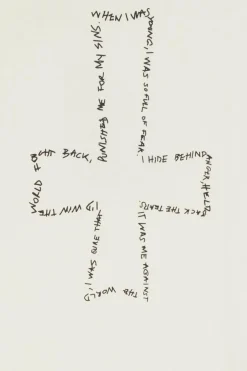 WHEN I WAS
YOUNG, I WAS SO FULL OF FEAR.
I HIDE BEHIND
ANGER, HELD
BACK THE TEARS.
IT WAS ME AGAINST
THE WORLD,
I WAS SURE THAT
I'D WIN THE
WORLD FOUGHT BACK,
PUNISHED ME FOR MY SINS.